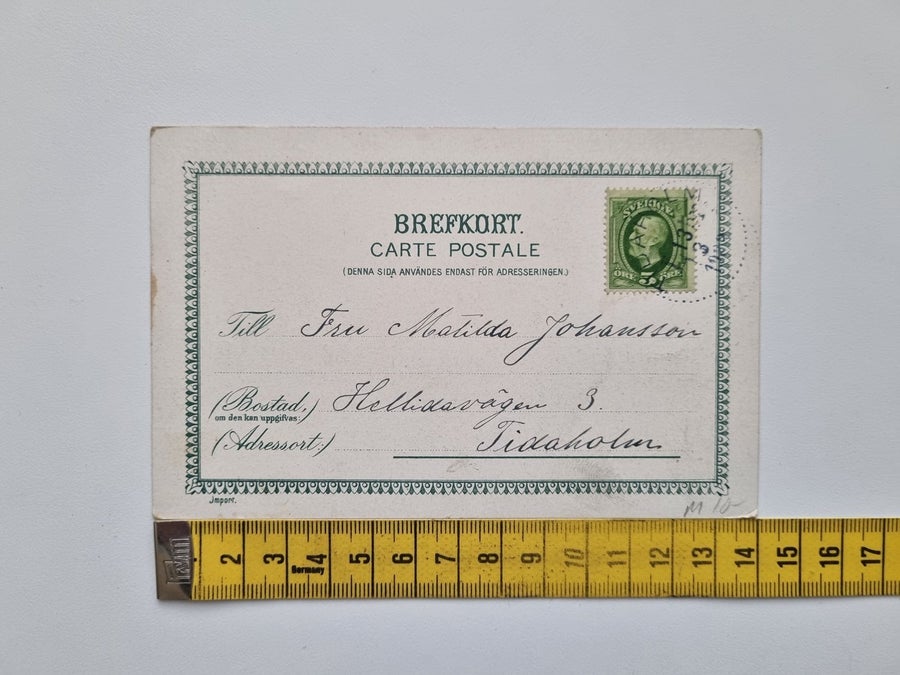 BREFKORT.
CARTE POSTALE
(DENNA SIDA ANVÄNDES ENDAST FÖR ADRESSERINGEN.)
SVERIGE
ÖRE 5 ÖRE
Till Fru Matilda Johansson
(Bostad,) Hellidavägen 3.
om den kan uppgifvas:
(Adressort:) Tidaholm
Import.
M 10-
2 3 4 5 6 7 8 9 10 11 12 13 14 15 16 17
Germany